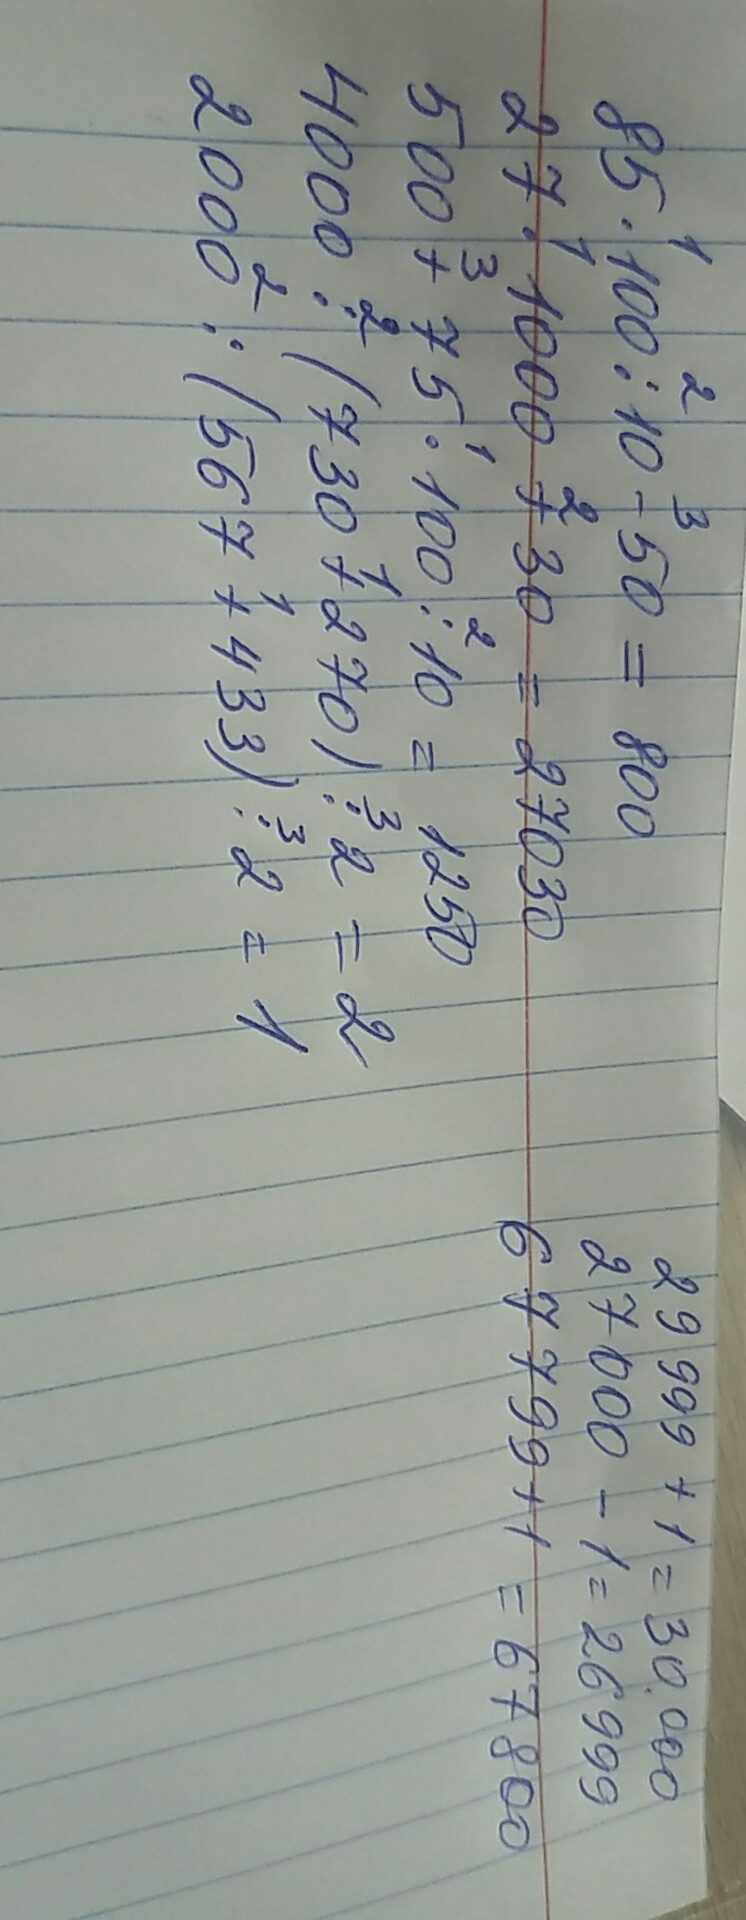 85 · 100 : 10 - 50 = 800
27 · 1000 + 30 = 27030
500 + 75 · 100 : 10 = 1250
4000 : (730 + 270) : 2 = 2
2000 : (567 + 433) : 2 = 1
29999 + 1 = 30.000
27000 - 1 = 26999
67799 + 1 = 67800